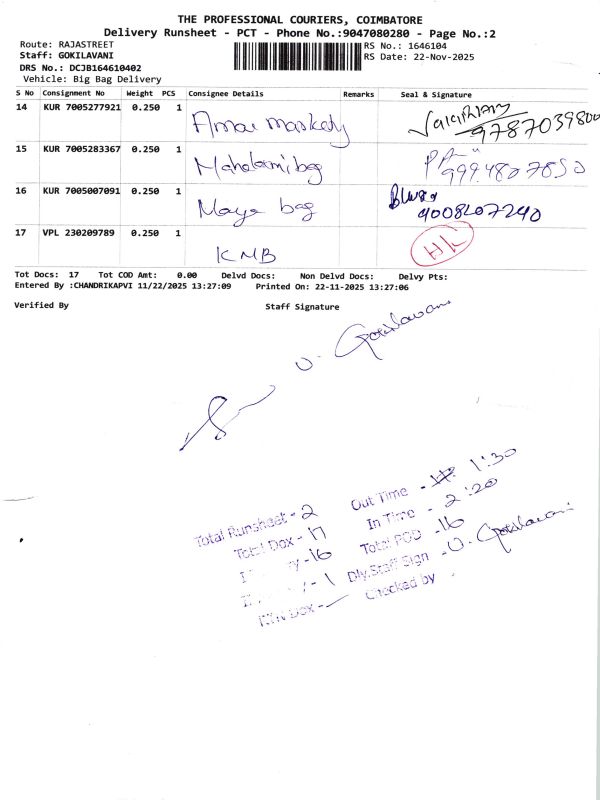 THE PROFESSIONAL COURIERS, COIMBATORE
Delivery Runsheet - PCT - Phone No.:9047080280 - Page No.:2
Route: RAJASTREET
Staff: GOKILAVANI
DRS No.: DCJB164610402
Vehicle: Big Bag Delivery
RS No.: 1646104
RS Date: 22-Nov-2025
S No Consignment No Weight PCS Consignee Details Remarks Seal & Signature
14 KUR 7005277921 0.250 1
9787039800
15 KUR 7005283367 0.250 1 bag
9994807850
16 KUR 7005007091 0.250 1 Maya bag
9008207240
17 VPL 230209789 0.250 1 KMB
Tot Docs: 17 Tot COD Amt: 0.00 Delvd Docs: Non Delvd Docs: Delvy Pts:
Entered By :CHANDRIKAPVI 11/22/2025 13:27:09 Printed On: 22-11-2025 13:27:06
Verified By Staff Signature
U. Gokilavani
Total Runsheet - 2 Out Time - 1:30
Total Dox - 17 In Time - 2:20
y - 16 Total POD - 16
y - 1 Dly.Staff Sign - U. Gokilavani
Dox - Checked by